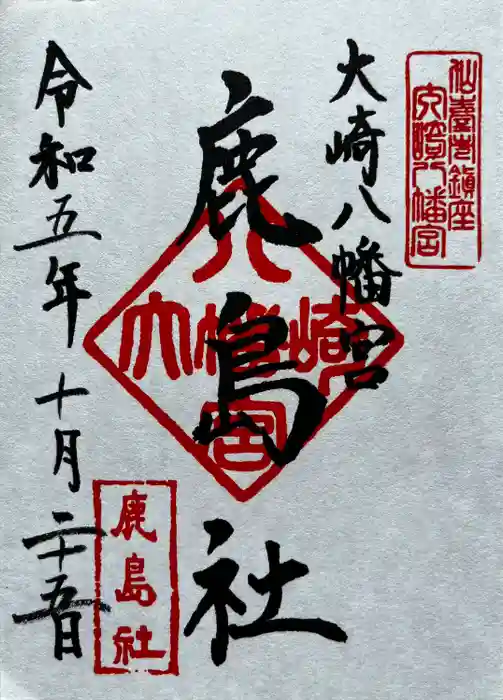 仙臺鎮座
大崎八幡宮
大崎八幡宮
鹿島社
大崎八幡宮
令和五年十月二十五日
鹿島社